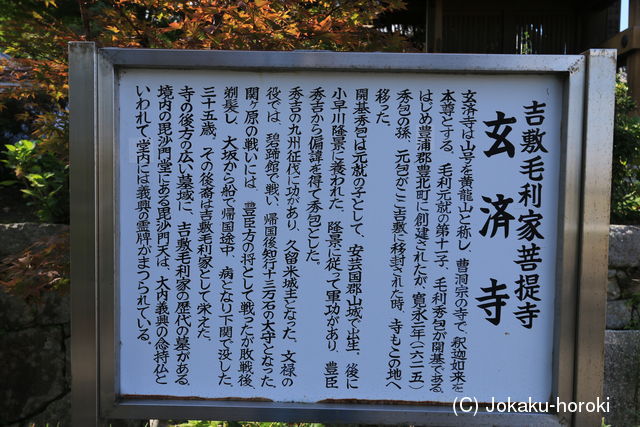 吉敷毛利家菩提寺
玄済寺
玄済寺は山号を黄龍山と称し、曹洞宗の寺で、釈迦如来を
本尊とする。毛利元就の第十二子、毛利秀包が開基である。
はじめ豊浦郡豊北町に創建されたが、寛永二年(一六二五)
秀包の孫、元包がここ吉敷へ移封された時、寺もこの地へ
移った。
開基秀包は元就の子として、安芸国郡山城で出生、後に
小早川隆景に養われた。隆景に従って軍功があり、豊臣
秀吉から偏諱を得て秀包とした。
秀吉の九州征伐に功があり、久留米城主となった。文禄の
役では、碧蹄館で戦い、帰国後知行十三万石の大守となった。
関ヶ原の戦いには、豊臣方の将として戦ったが敗戦後
剃髪し、大坂から船で帰国途中、病となり下関で没した。
三十五歳。その後裔は吉敷毛利家として栄えた。
寺の後方の広い墓域に、吉敷毛利家の歴代の墓がある。
境内の毘沙門堂にある毘沙門天は、大内義興の念持仏と
いわれて、堂内には義興の霊牌がまつられている。
(C) Jokaku-horoki